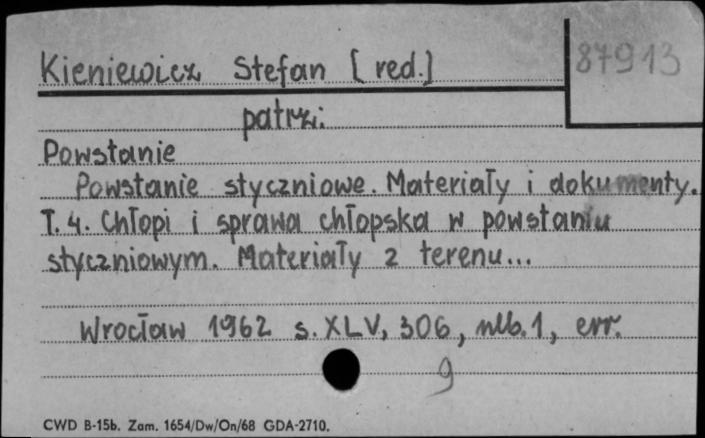 Kieniewicz Stefan [red.]
87913
patrz:
Powstanie
Powstanie styczniowe. Materiały i dokumenty.
T. 4. Chłopi i sprawa chłopska w powstaniu
styczniowym. Materiały z terenu...
Wrocław 1962 s. XLV, 306, nlb. 1, err.
9
CWD B-15b. Zam. 1654/Dw/On/68 GDA-2710.